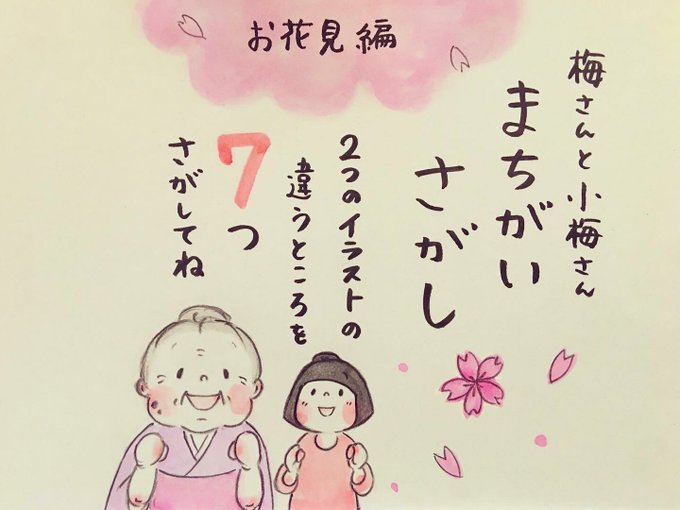 お花見編
梅さんと小梅さん
まちがい
さがし
2つのイラストの
違うところを
7つ
さがしてね